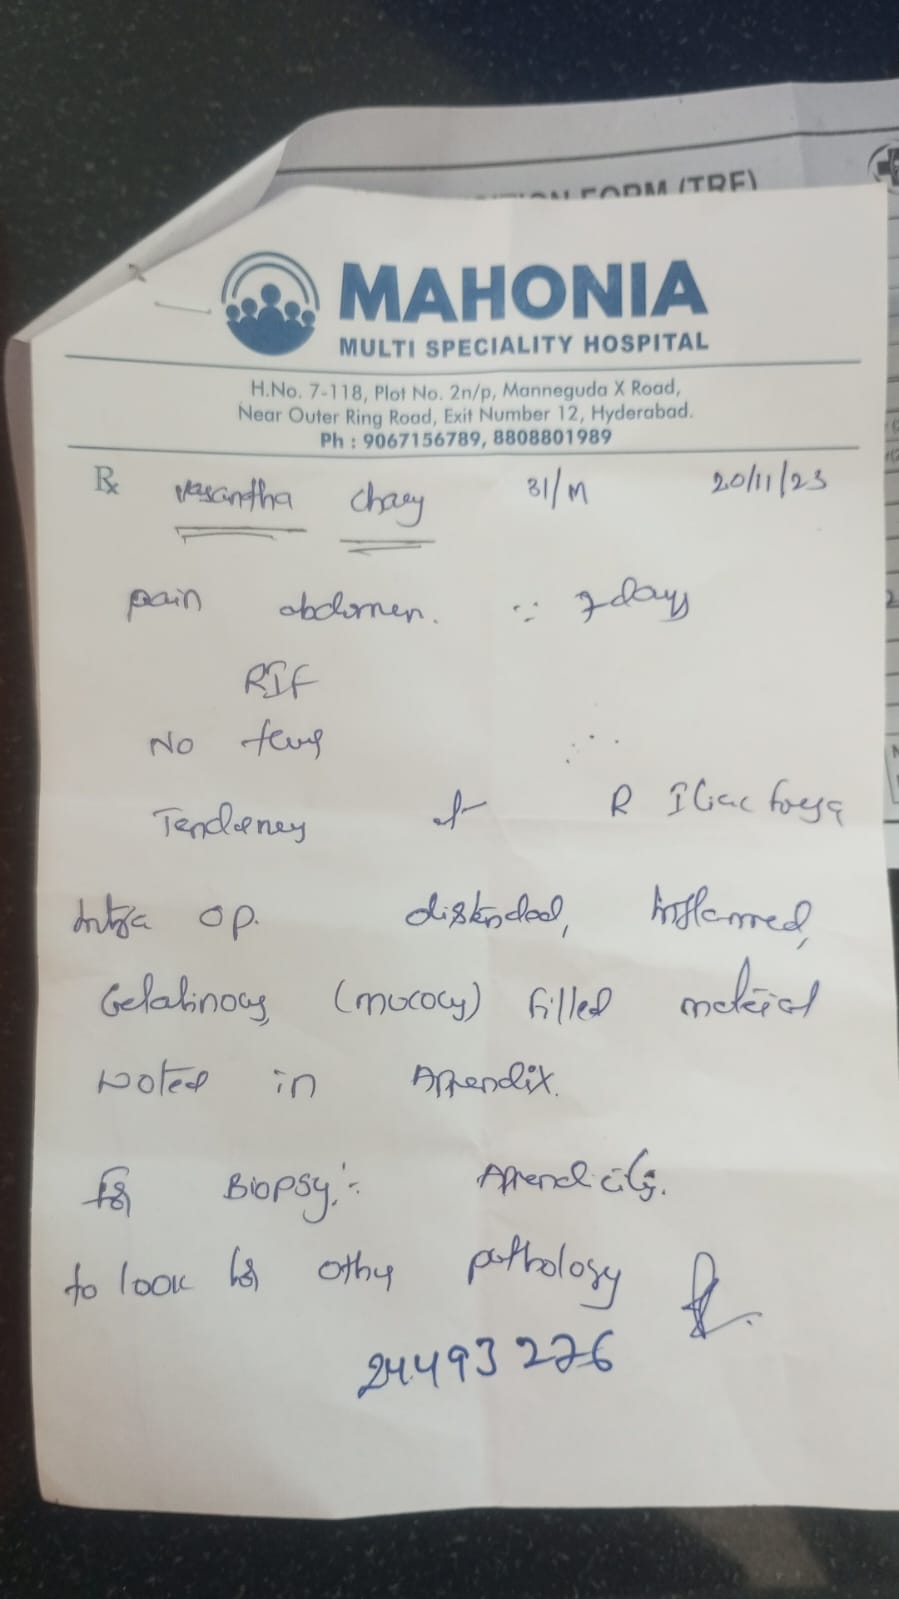 MAHONIA
MULTI SPECIALITY HOSPITAL
H.No. 7-118, Plot No. 2n/p, Manneguda X Road,
Near Outer Ring Road, Exit Number 12, Hyderabad.
Ph : 9067156789, 8808801989
Rx Vasantha Chary 31/M 20/11/23
pain abdomen. 7 days
RIF
No fever
Tenderness at R Iliac fossa
Intra op. distended, Inflamed,
Gelatinous, (mucocy) filled material
Noted in Appendix.
for Biopsy:- Appendicitis.
to look for other pathology
24493226
FORM (TRF)